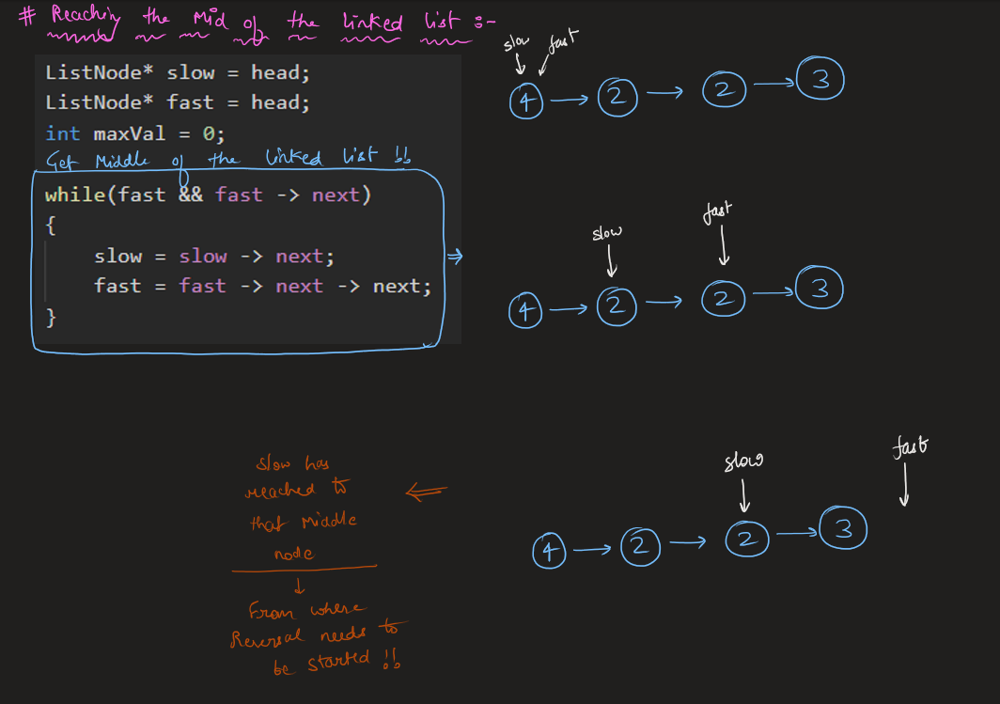 # Reaching the Mid of the linked list :-
ListNode* slow = head;
ListNode* fast = head;
int maxVal = 0;
Get Middle of the linked list !!
while(fast && fast -> next)
{
slow = slow -> next;
fast = fast -> next -> next;
}
slow fast
4 2 2 3
slow fast
4 2 2 3
slow fast
4 2 2 3
slow has
reached to
that middle
node
From where
Reversal needs to
be started !!